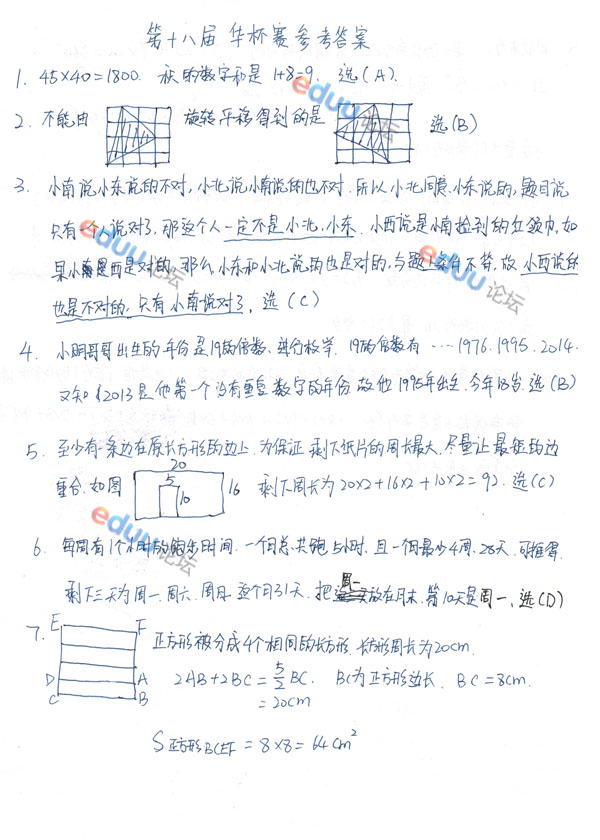 第十八届 华杯赛参考答案
1. 45×40=1800. 积的数字和是 1+8=9. 选(A).
2. 不能由 旋转平移得到的是 选(B)
3. 小南说小东说的不对, 小北说小南说的也不对. 所以小北同意小东说的, 题目说
只有一个人说对了, 那这个人一定不是小北, 小东. 小西说是小南捡到的红领巾, 如
果小西是对的, 那么小东和小北说的也是对的, 与题目条件不符, 故 小西说的
也是不对的, 只有小南说对了, 选(C)
4. 小明哥哥出生的年份是19的倍数, 进行枚举. 19的倍数有 ……1976.1995.2014.
又知 2013是他第一个没有重复数字的年份. 故他1995年出生. 今年18岁. 选(B)
5. 至少有一条边在原长方形的边上. 为保证剩下纸片的周长最大, 尽量让最短的边
重合. 如图 20 5 10 16 剩下周长为 20×2+16×2+10×2=92. 选(C)
6. 每周有1个小时的跑步时间. 一个月总共跑5小时. 且一个月最少4周. 28天. 可推得
剩下三天为周一. 周六. 周日. 这个月31天. 把周一放在月末, 第10天是周一, 选(D)
7. E F D A C B
正方形被分成4个相同的长方形. 长方形周长为20cm.
2AB+2BC=5/2 BC. BC为正方形边长. BC=8cm.
=20cm
S正方形BCEF=8×8=64cm²
eduu论坛
eduu论坛
eduu论坛
eduu论坛